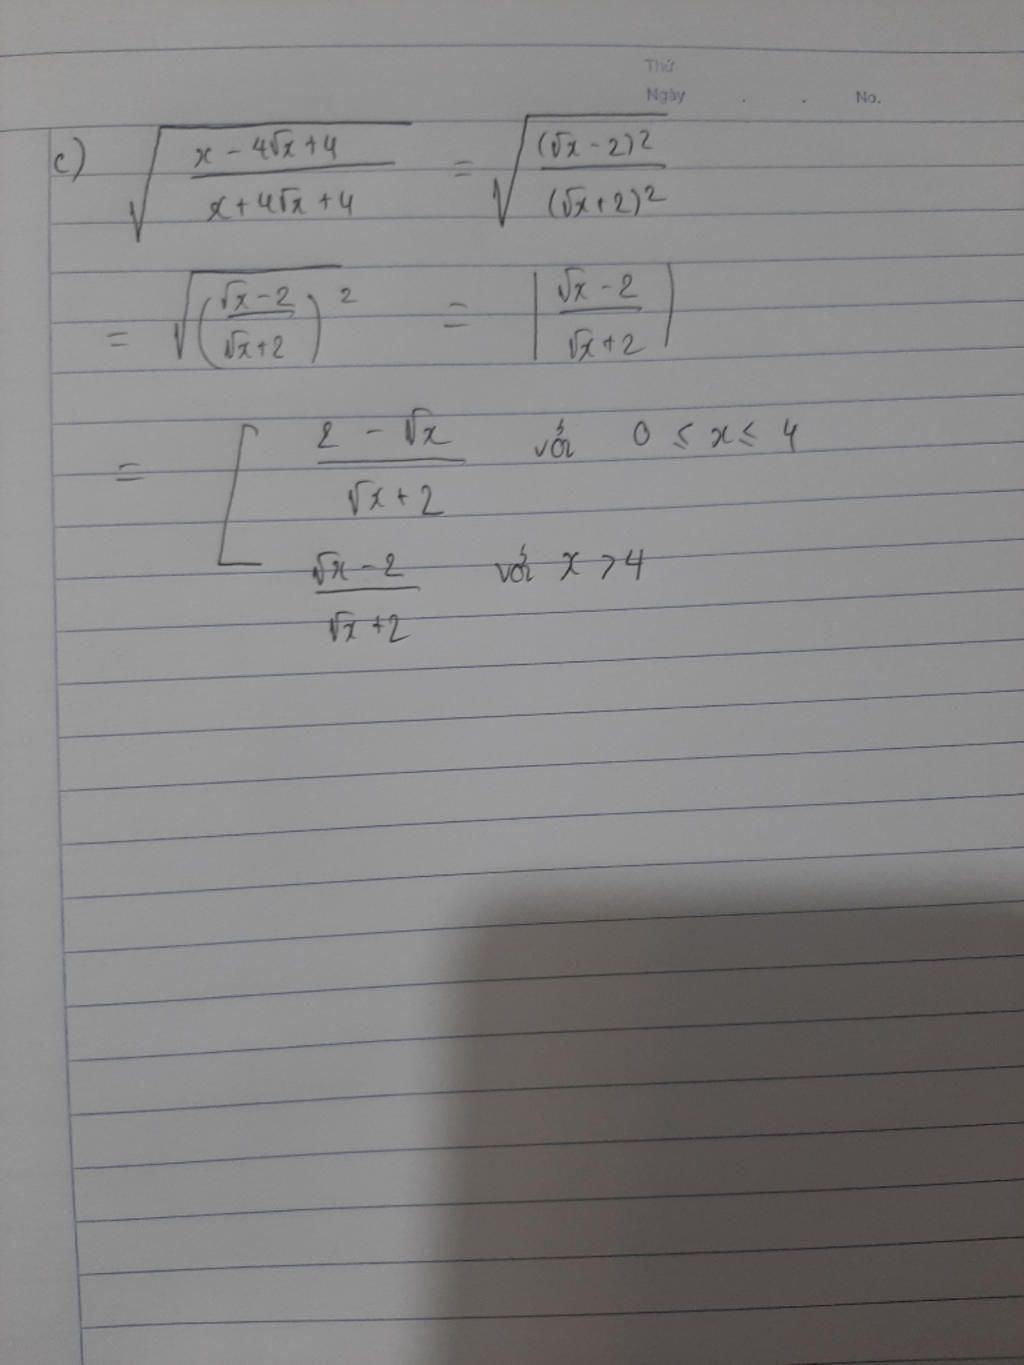 Thứ
Ngày . . No.
c) √((x - 4√x + 4)/(x + 4√x + 4)) = √((√x - 2)²/(√x + 2)²)
= √((√x - 2)/(√x + 2))² = |(√x - 2)/(√x + 2)|
= [ (2 - √x)/(√x + 2) với 0 ≤ x ≤ 4
(√x - 2)/(√x + 2) với x > 4